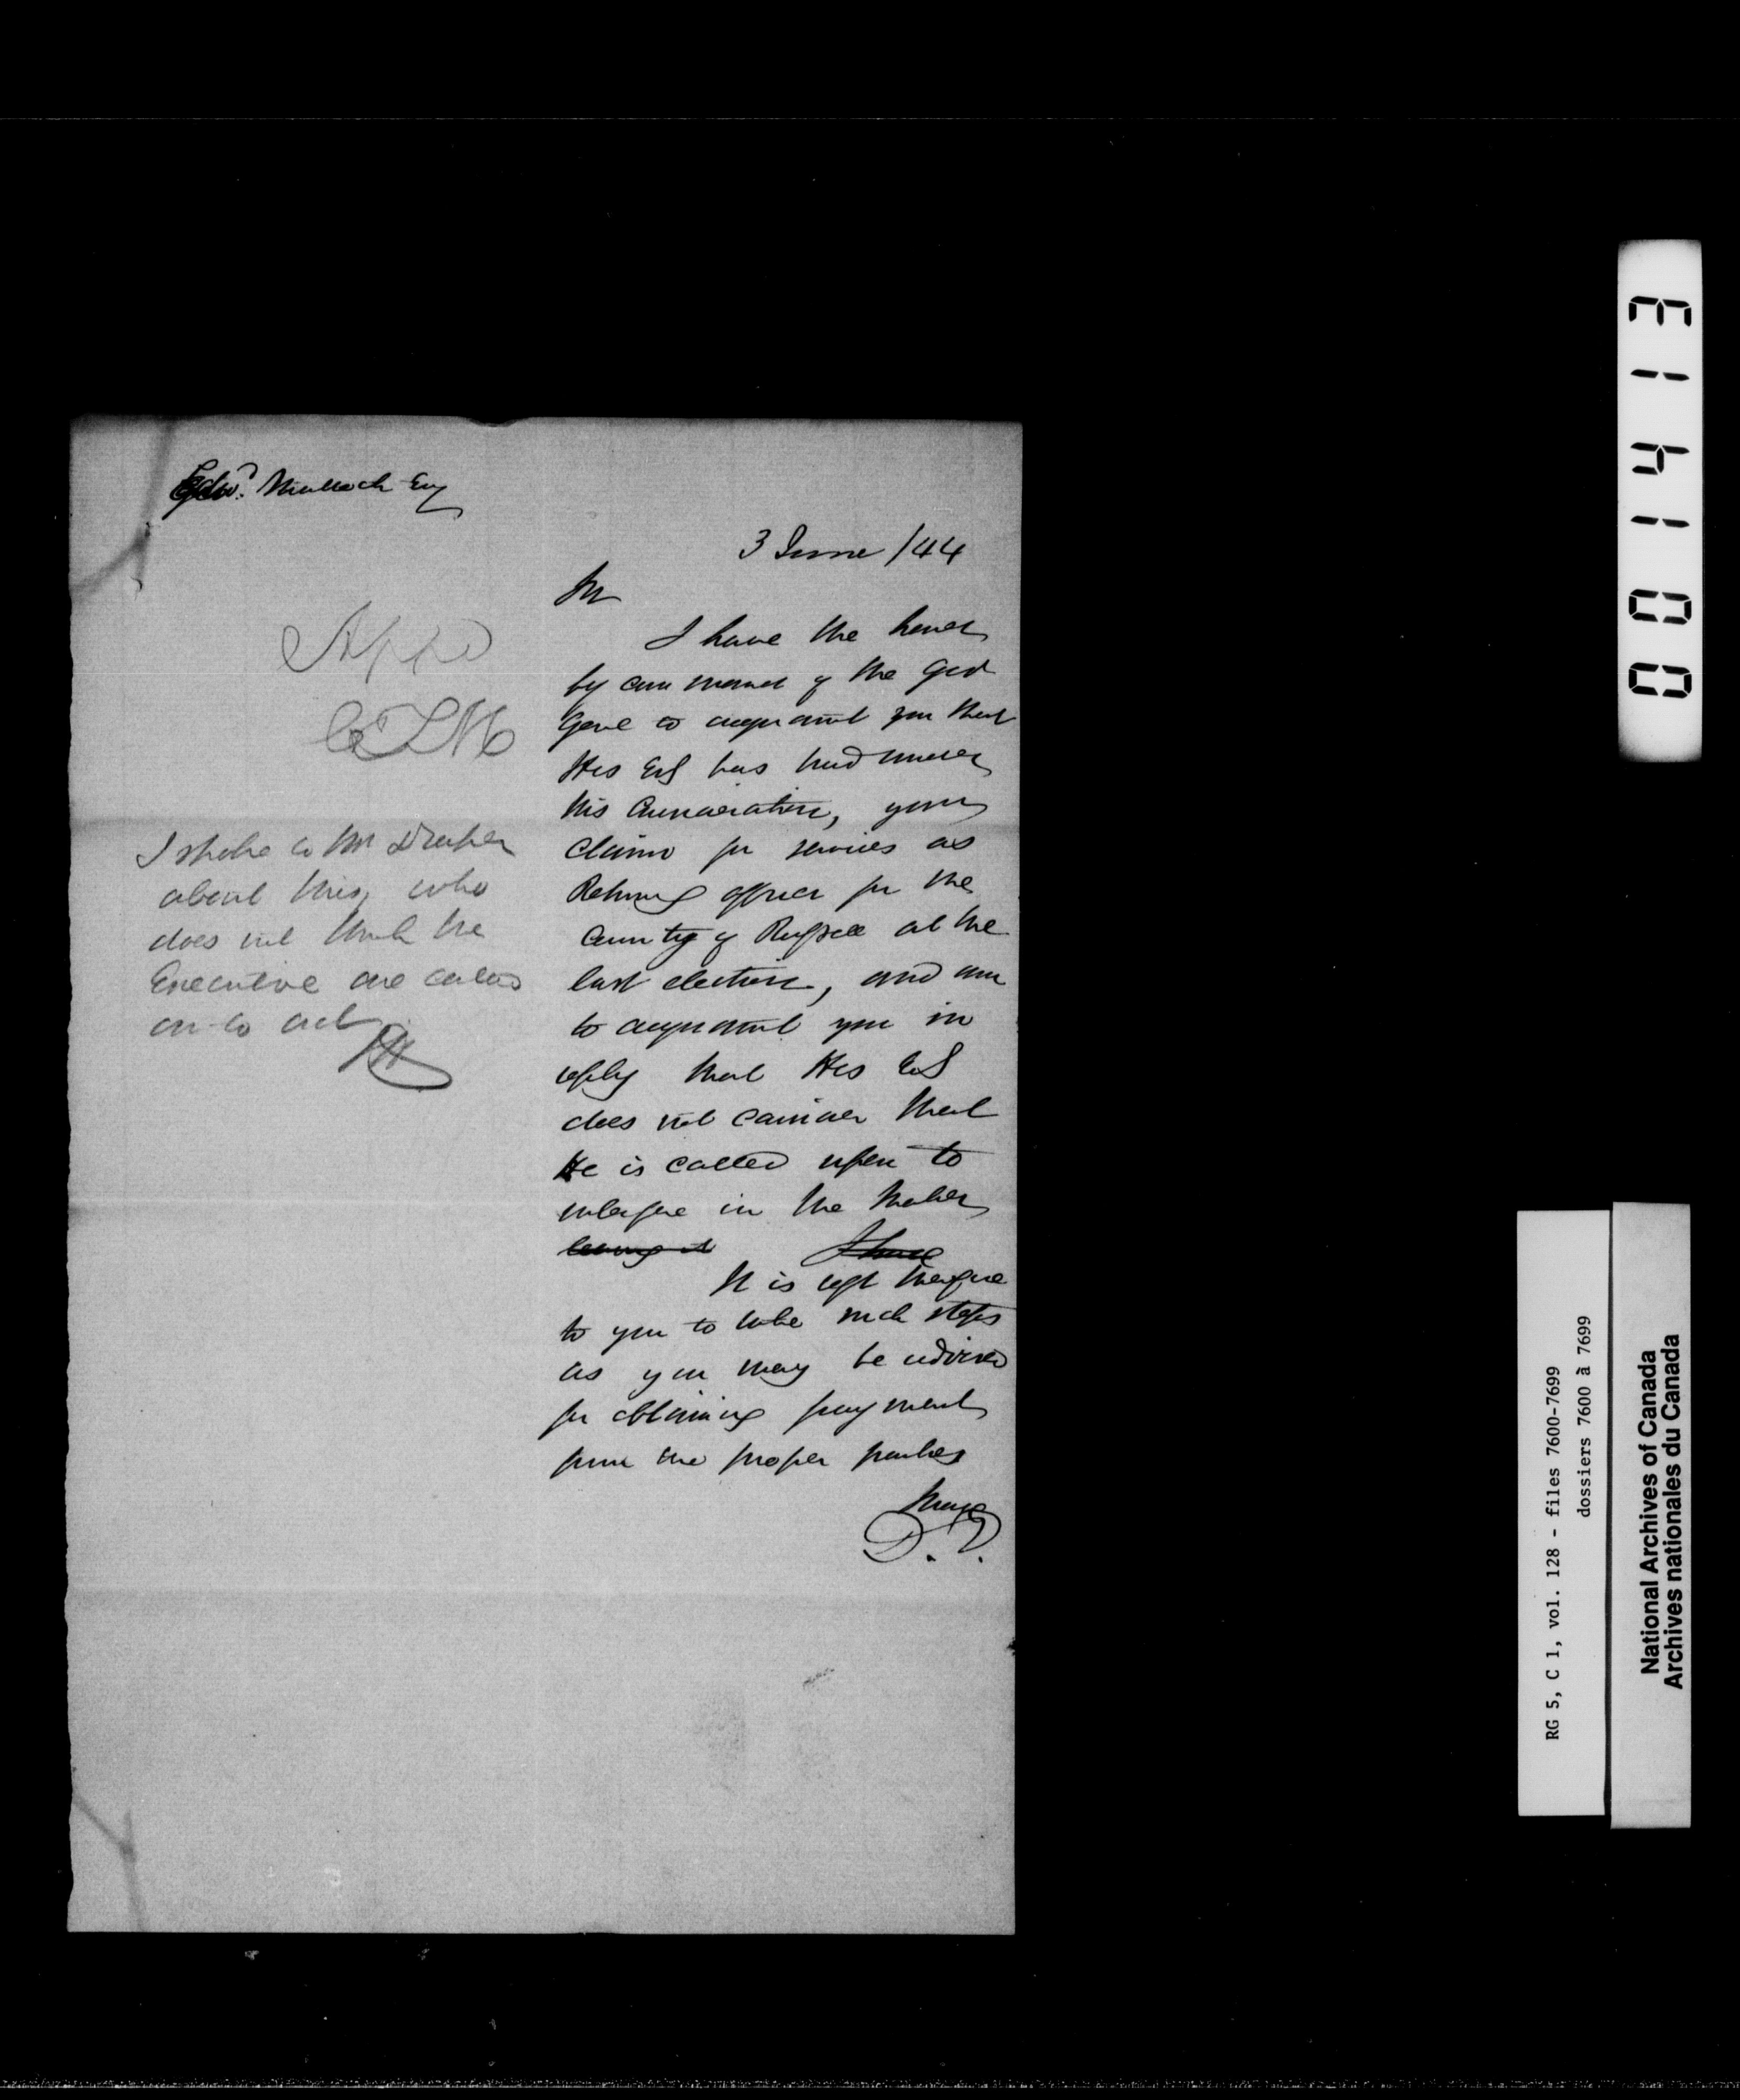 Edwd. Mulloch Esq
3 June /44
Sir
I have the honor
by command of the Govr
Genl to acquaint you that
His Exc has had under
his Consideration, your
claim for services as
Returning officer for the
County of Russell at the
last election, and am
to acquaint you in
reply that His Exc
does not consider that
He is called upon to
interfere in the matter
leaving it I have
It is left therefore
to you to take such steps
as you may be advised
for obtaining payment
from the proper parties
D. D.
Appd
CTM
I spoke to Mr Draper
about this, who
does not think the
Executive are called
on to act
0 0 1 4 1 3
RG 5, C 1, vol. 128 - files 7600-7699
dossiers 7600 à 7699
National Archives of Canada
Archives nationales du Canada